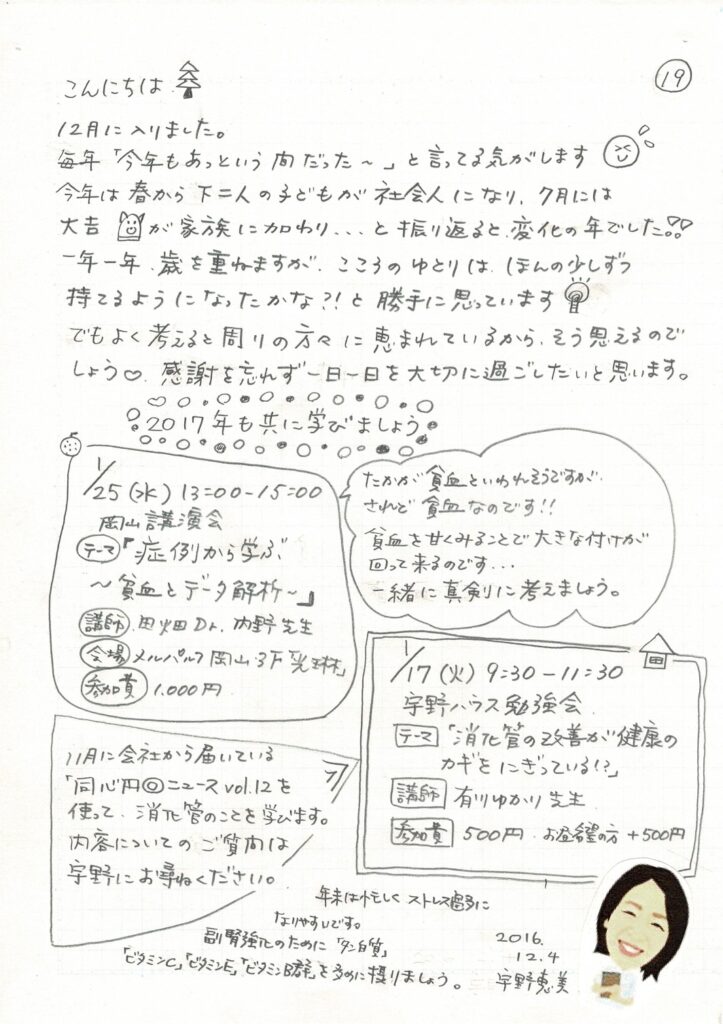 19
こんにちは
12月に入りました。
毎年「今年もあっという間だった～」と言ってる気がします
今年は春から下二人の子どもが社会人になり、7月には
大吉 が家族に加わり、、、と振り返ると、変化の年でした!!
一年一年、歳を重ねますが、こころのゆとりは、ほんの少しずつ
持てるようになったかな?!と勝手に思っています
でもよく考えると周りの方々に恵まれているから、そう思えるので
しょう♡、感謝を忘れず一日一日を大切に過ごしたいと思います。
2017年も共に学びましょう
1/25(水)13:00-15:00
岡山講演会
テーマ「症例から学ぶ
～貧血とデータ解析～」
講師 田畑Dr. 内野先生
会場 メルパルク岡山3F「光琳」
参加費 1.000円
たかが貧血といわれそうですが、
されど貧血なのです!!
貧血を甘くみることで大きな付けが
回って来るのです...
一緒に真剣に考えましょう。
1/17(火)9:30-11:30
宇野ハウス勉強会
テーマ「消化管の改善が健康の
カギをにぎっている!?」
講師 有川ゆかり先生
参加費 500円 お昼希望の方+500円
11月に会社から届いている
「同心円◎ニュースvol.12を
使って、消化管のことを学びます。
内容についてのご質問は
宇野にお尋ねください。
年末は忙しくストレス過多に
なりやすいです。
副腎強化のために「タン白質」
「ビタミンC」「ビタミンE」「ビタミンB群」を多めに摂りましょう。
2016.
12.4
宇野恵美